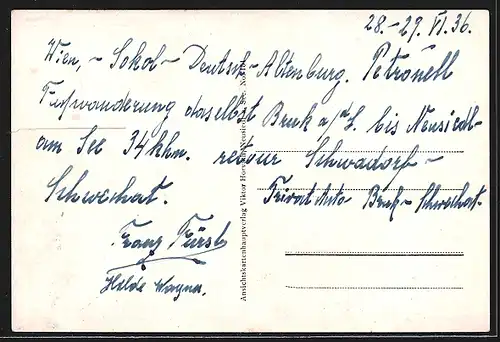 28.-29. VI. 36.
Wien, - Sokol - Deutsch - Altenburg. Petronell
Fußwanderung daselbst Bruck a/d L. bis Neusiedl-
am See 34 khm. retour Schwadorf -
Schwechat.
Privat Auto Bruck - Schwechat.
Franz Fürst
Hilde Wagner.
Ansichtskartenhauptverlag Viktor